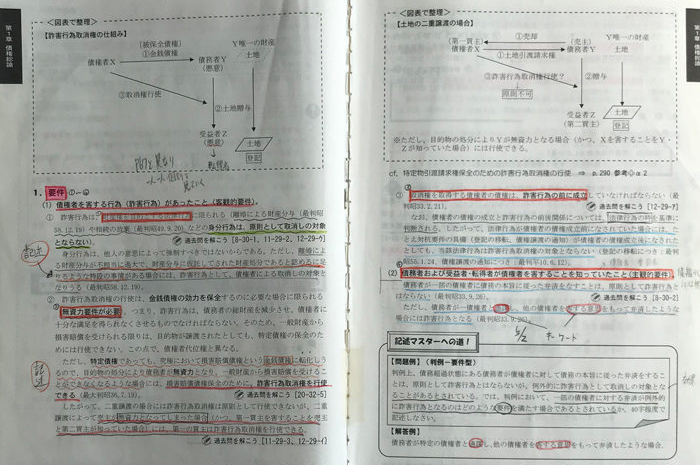 第1章 債権総論
<図表で整理>
【詐害行為取消権の仕組み】
[被保全債権]
①金銭債権
Y唯一の財産
債権者X
債務者Y
(悪意)
土地
③取消権行使
②土地贈与
受益者Z
(悪意)
土地
登記
1. 要件 ①~④
(1) 債権者を害する行為(詐害行為)があったこと(客観的要件)。
① 詐害行為は、
に限られる(離婚による財産分与(最判昭
58.12.19)や相続の放棄(最判昭49.9.20)などの身分行為は、原則として取消しの対象
とならない)。
過去問を解こう[8-30-1、11-29-2、12-29-5]
記述
身分行為は、他人の意思によって強制すべきではないからである。ただし、離婚によ
る財産分与が不相当に過大で、財産分与に仮託してされた財産処分であると認めるに足
りるような特段の事情がある場合には、詐害行為として、債権者による取消しの対象と
なりうる(最判昭58.12.19)。
② 詐害行為取消権の行使は、金銭債権の効力を保全するのに必要な場合に限られる
(無資力要件が必要)。つまり、詐害行為は、債務者の総財産を減少させ、債権者に
十分な満足を得られなくさせるものでなければならない。そのため、一般財産から
損害賠償を受けられる限りは、目的物が譲渡されたとしても、特定債権の保全のた
めには行使できない。この点で、債権者代位権と異なる。
記述
ただし、特定債権であっても、究極において損害賠償債権という金銭債権に転化しうる
ので、目的物の処分により債務者が無資力となり、一般財産から損害賠償を受けるこ
とができなくなるような場合には、損害賠償債権保全のために、詐害行為取消権を行使
できる(最大判昭36.7.19)。
過去問を解こう[20-32-5]
したがって、二重譲渡の場合には詐害行為取消権は原則として行使できないが、二重
譲渡によって売主が無資力となってしまった場合(かつ、第一買主を害することを売主
と第二買主が知っていた場合)には、第一の買主は詐害行為取消権を行使できる。
過去問を解こう[11-29-3、12-29-4]
<図表で整理>
【土地の二重譲渡の場合】
①売却
(第一買主)
(売主)
Y唯一の財産
債権者X
債務者Y
土地
①土地引渡請求権
③詐害行為取消権行使?
②贈与
原則不可
受益者Z
(第二買主)
土地
登記
※ただし、目的物の処分によりYが無資力となる場合(かつ、Xを害することをY・
Zが知っていた場合)には行使できる。
cf. 特定物引渡請求権保全のための詐害行為取消権の行使 ⇒ p.290 参考◇α2
③ 取消権を取得する債権者の債権は、詐害行為の前に成立していなければならない(最
判昭33.2.21)。
過去問を解こう[12-29-7]
なお、債権者の債権の成立と詐害行為の前後関係については、法律行為の時を基準
に判断される。したがって、法律行為が債権者の債権成立前になされていた場合には、た
とえ対抗要件の具備(登記の移転、債権譲渡の通知)が債権者の債権成立後になされた
としても、当該法律行為は詐害行為取消権の対象とならない(登記の移転につき:最判
昭55.1.24、債権譲渡の通知につき:最判平10.6.12)。
(2) 債務者および受益者・転得者が債権者を害することを知っていたこと(主観的要件)。
債務者が一部の債権者に債務の本旨に従った弁済をなすことは、原則として詐害行為
とはならない(最判昭33.9.26)。
ただし、債務者が一債権者と通謀し、他の債権者を害する意思をもって弁済したような
場合には詐害行為となる(最判昭33.9.26)。
キーワード
記述マスターへの道!
【問題例】(判例ー要件型)
判例上、債務超過状態にある債務者が債権者に対して債務の本旨に従った弁済をする
ことは、原則として詐害行為とはならないが、例外的に詐害行為として取消しの対象とな
ることがあるとされている。では、判例において、一部の債権者に対する弁済が例外的
に詐害行為となるのはどのような要件を満たす場合であるとされているか。40字程度で
記述しなさい。
【解答例】
債務者が特定の債権者と通謀し、他の債権者を害する意思をもって弁済したような場合。
第1章 債権総論